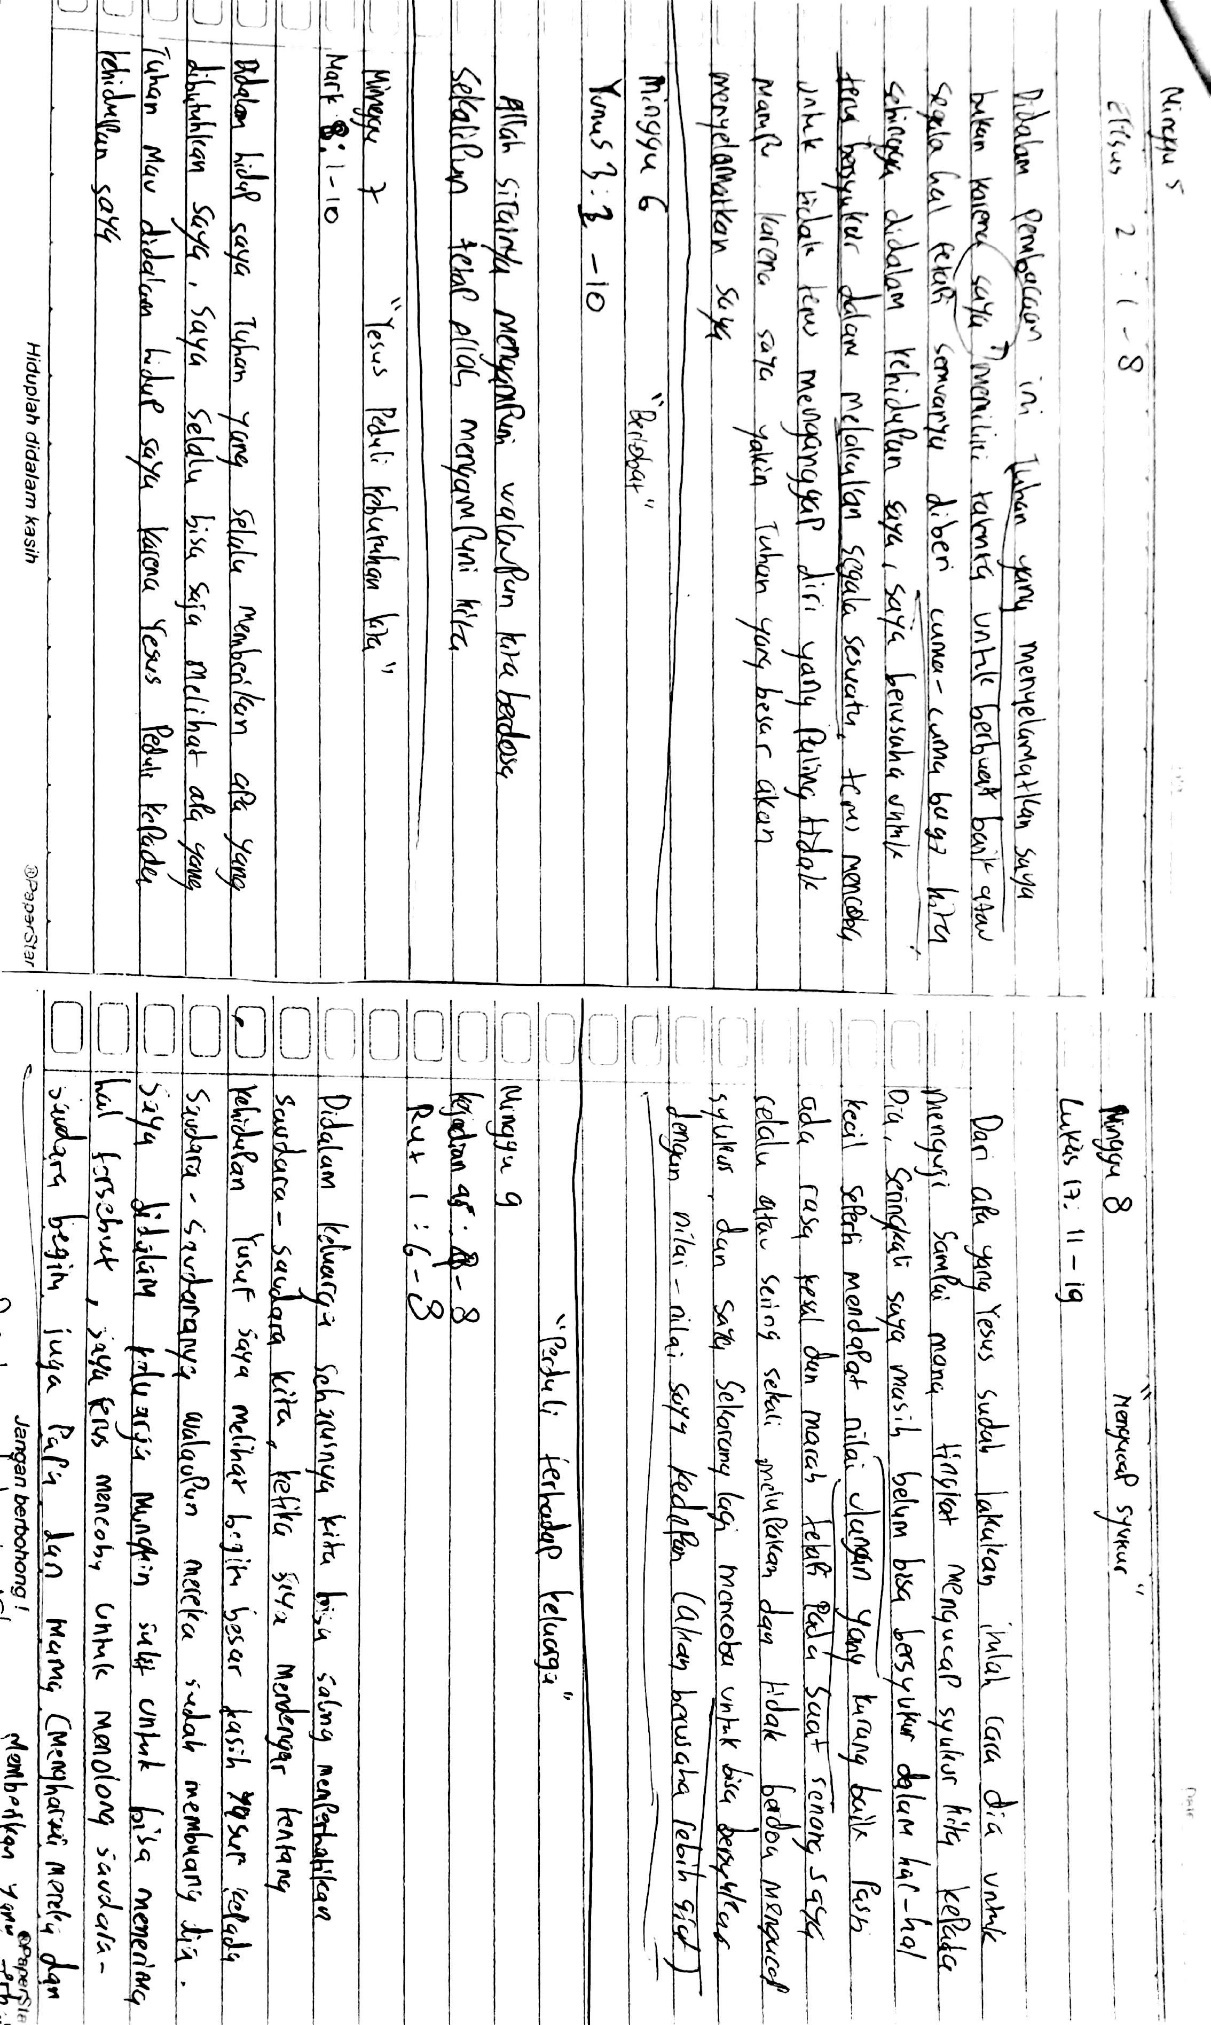 Minggu 5
Efesus 2 : 1 - 8
Didalam pembacaan ini Tuhan yang menyelamatkan saya
bukan karena saya memiliki talenta untuk berbuat baik atau
segala hal tetapi semuanya diberi cuma-cuma bagi kita
sehingga didalam kehidupan saya, saya berusaha untuk
terus bersyukur dalam melakukan segala sesuatu, terus mencoba
untuk tidak terus menganggap diri yang paling tidak
mampu karena saya yakin Tuhan yang besar akan
menyelamatkan saya
Minggu 6 "Bertobat"
Yunus 3 : - 10
Allah sifatnya mengampuni walaupun kita berdosa
sekalipun tetap Allah mengampuni kita
Minggu 7 "Yesus Peduli kebutuhan kita"
Mark 8 : 1 - 10
Didalam hidup saya Tuhan yang selalu memberikan apa yang
dibutuhkan saya, saya selalu bisa saja melihat apa yang
Tuhan mau didalam hidup saya karena Yesus Peduli kepada
kehidupan saya
Hiduplah didalam kasih
®PaperStar
Minggu 8 "Mengucap syukur"
Lukas 17 : 11 - 19
Dari apa yang Yesus sudah lakukan inilah cara dia untuk
menguji sampai mana tingkat mengucap syukur kita kepada
Dia, seringkali saya masih belum bisa bersyukur dalam hal-hal
kecil seperti mendapat nilai ulangan yang kurang baik pasti
ada rasa kesal dan marah tetapi pada saat senang saya
selalu atau sering sekali melupakan dan tidak berdoa mengucap
syukur, dan saya sekarang lagi mencoba untuk bisa bersyukur
dengan nilai-nilai saya kedepan (akan berusaha lebih giat)
"Perduli terhadap keluarga"
Minggu 9
Kejadian 45 : - 8
Rut 1 : 6 - 8
Didalam keluarga seharusnya kita bisa saling memperhatikan
saudara-saudara kita, ketika saya mendengar tentang
kehidupan Yusuf saya melihat begitu besar kasih Yusuf kepada
Saudara-saudaranya walaupun mereka sudah membuang dia.
saya didalam keluarga mungkin sulit untuk bisa menerima
hal tersebut, saya terus mencoba untuk menolong saudara-
saudara begitu juga Papa dan Mama (menghargai mereka dan
Jangan berbohong!
®PaperStar
Memberikan yang